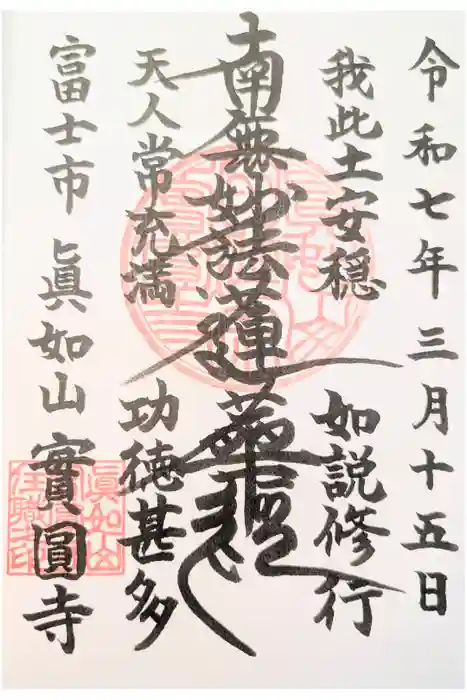 令和七年三月十五日
我此土安穏 如説修行
南無妙法蓮華経
天人常充満 功徳甚多
富士市 眞如山 實圓寺